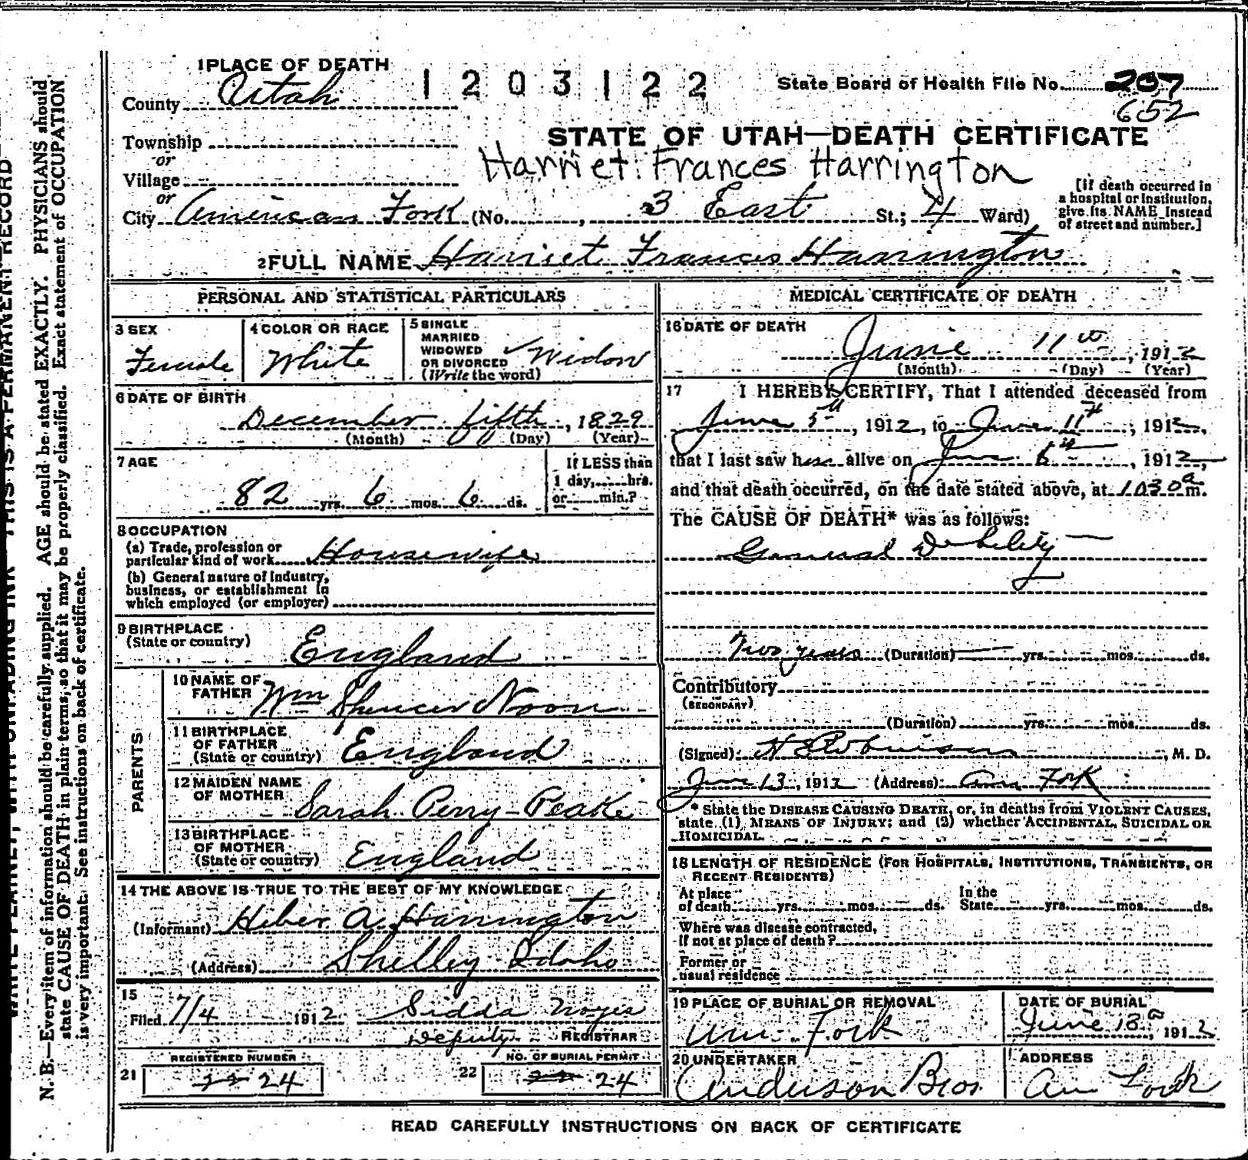 1 PLACE OF DEATH
County Utah
1203122
State Board of Health File No. 207
652
Township
or
Village
or
STATE OF UTAH—DEATH CERTIFICATE
Harriet Frances Harrington
City American Fork (No. , 3 East St.; 4 Ward)
[If death occurred in
a hospital or institution,
give its NAME instead
of street and number.]
2 FULL NAME Harriet Frances Harrington
PERSONAL AND STATISTICAL PARTICULARS
3 SEX
Female
4 COLOR OR RACE
White
5 SINGLE
MARRIED
WIDOWED
OR DIVORCED
(Write the word)
Widow
6 DATE OF BIRTH
December fifth, 1829
(Month) (Day) (Year)
7 AGE
82 yrs. 6 mos. 6 ds.
If LESS than
1 day, hrs.
or min.?
8 OCCUPATION
(a) Trade, profession or
particular kind of work Housewife
(b) General nature of industry,
business, or establishment in
which employed (or employer)
9 BIRTHPLACE
(State or country) England
PARENTS
10 NAME OF
FATHER Wm Spencer Noon
11 BIRTHPLACE
OF FATHER
(State or country) England
12 MAIDEN NAME
OF MOTHER Sarah Perry-Peake
13 BIRTHPLACE
OF MOTHER
(State or country) England
14 THE ABOVE IS TRUE TO THE BEST OF MY KNOWLEDGE
(Informant) Heber A. Harrington
(Address) Shelley Idaho
15
Filed 7/4 1912 Noyes
Deputy REGISTRAR
REGISTERED NUMBER
21 22 24
NO. OF BURIAL PERMIT
22 22 24
MEDICAL CERTIFICATE OF DEATH
16 DATE OF DEATH
June 11th, 1912
(Month) (Day) (Year)
17 I HEREBY CERTIFY, That I attended deceased from
June 5th, 1912, to June 11th, 1912,
that I last saw her alive on June 6th, 1912,
and that death occurred, on the date stated above, at 1030 a m.
The CAUSE OF DEATH* was as follows:
General Debility
Two years (Duration) yrs. mos. ds.
Contributory
(SECONDARY)
(Duration) yrs. mos. ds.
(Signed) , M. D.
June 13, 1912 (Address) Am Fork
* State the DISEASE CAUSING DEATH, or, in deaths from VIOLENT CAUSES,
state (1) MEANS OF INJURY; and (2) whether ACCIDENTAL, SUICIDAL OR
HOMICIDAL.
18 LENGTH OF RESIDENCE (FOR HOSPITALS, INSTITUTIONS, TRANSIENTS, OR
RECENT RESIDENTS)
At place
of death yrs. mos. ds.
In the
State yrs. mos. ds.
Where was disease contracted,
If not at place of death?
Former or
usual residence
19 PLACE OF BURIAL OR REMOVAL
Am Fork
DATE OF BURIAL
June 13, 1912
20 UNDERTAKER
Anderson Bros
ADDRESS
Am Fork
READ CAREFULLY INSTRUCTIONS ON BACK OF CERTIFICATE
THIS IS A PERMANENT RECORD
N. B.—Every item of information should be carefully supplied. AGE should be stated EXACTLY. PHYSICIANS should
state CAUSE OF DEATH in plain terms, so that it may be properly classified. Exact statement of OCCUPATION
is very important. See instructions on back of certificate.